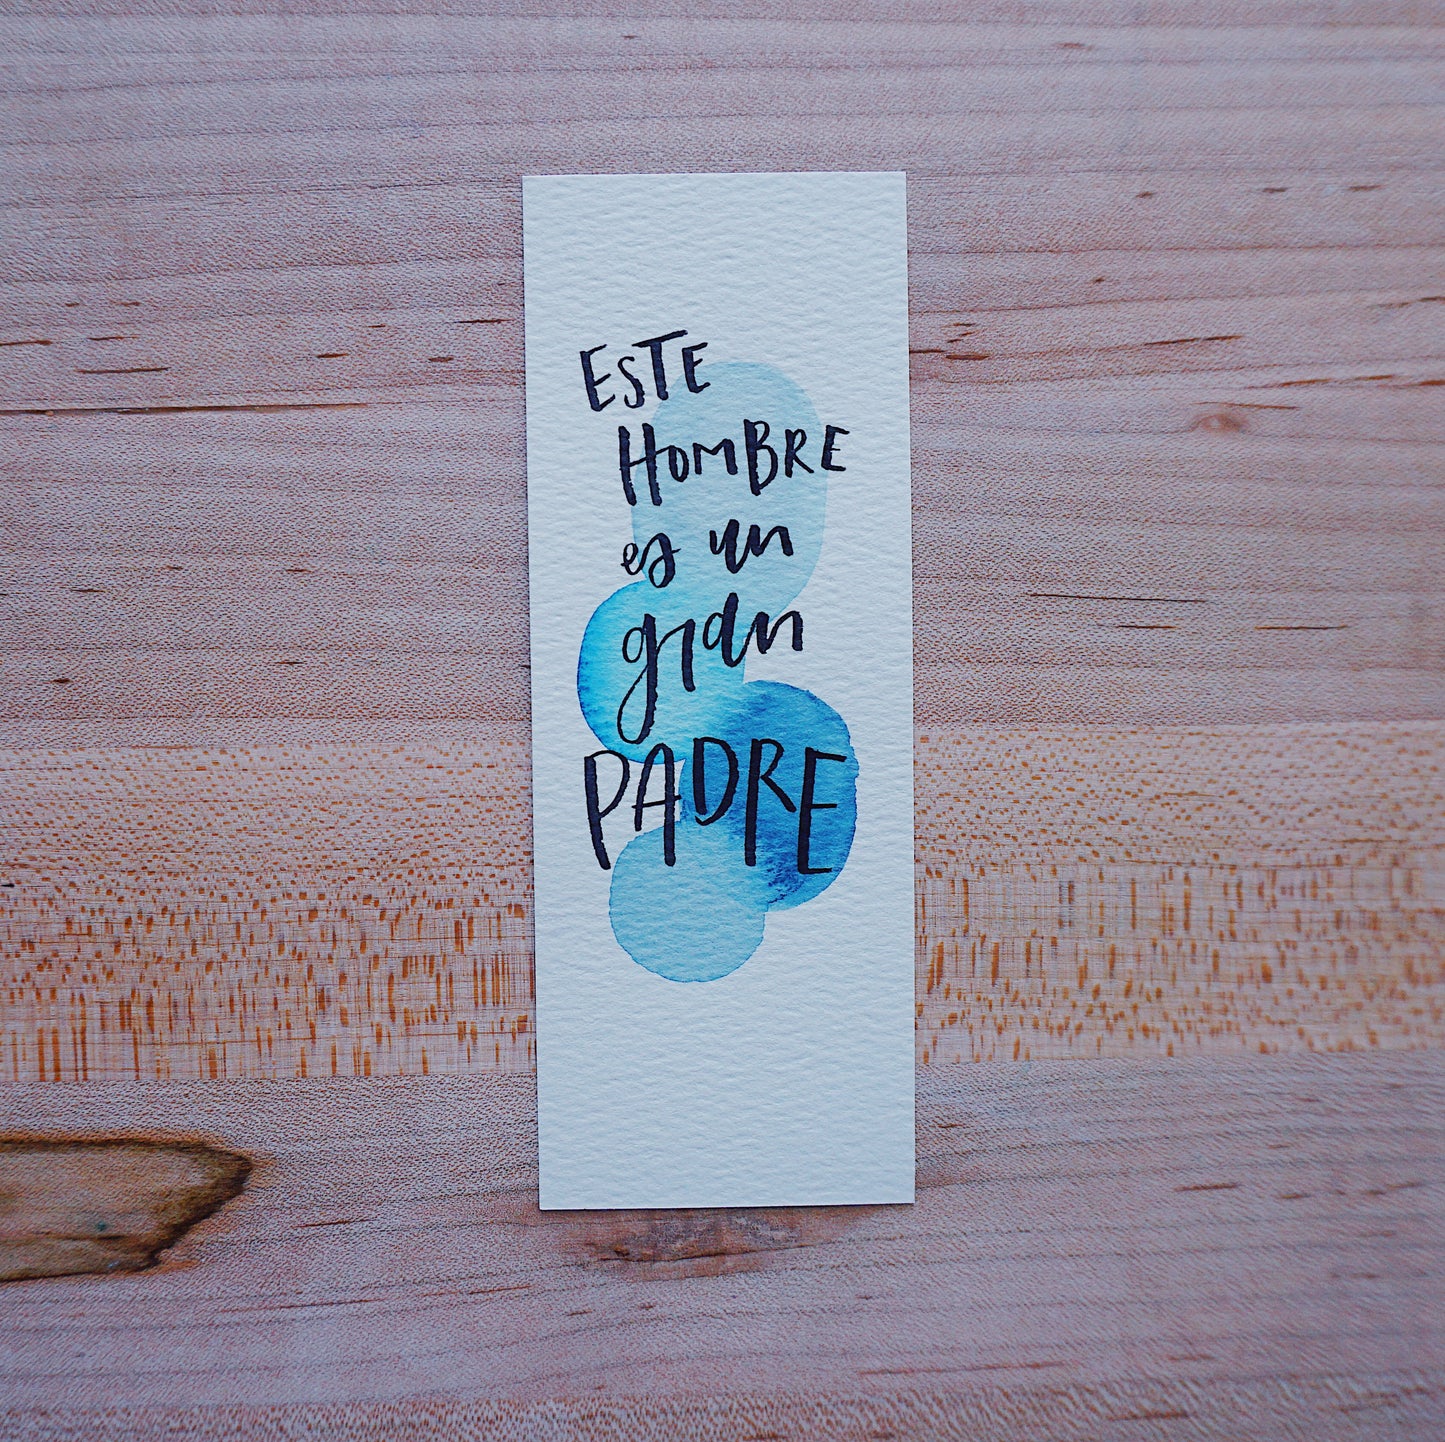 ESTE
HOMBRE
es un
gran
PADRE